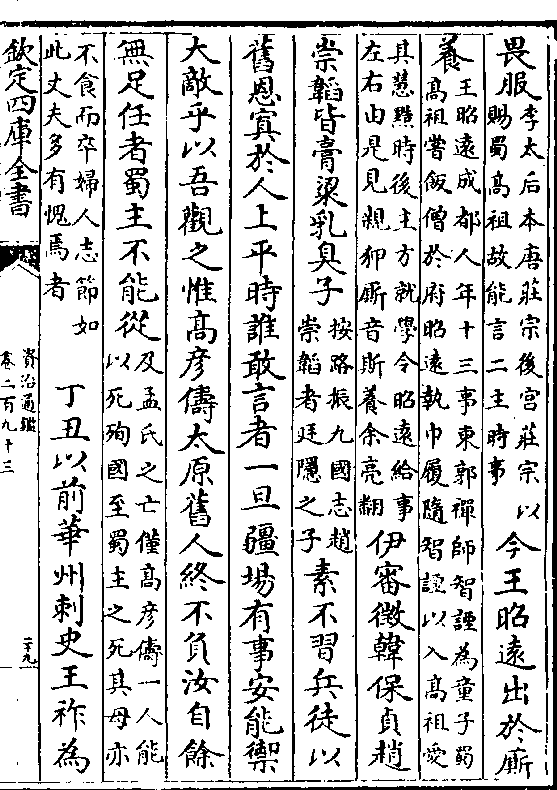 畏服李太后本唐莊宗後宮莊宗以賜蜀高祖故能言二主時事今王昭遠出於廝
養王昭遠成都人年十三事東郭禪師智諲為童子蜀高祖嘗飯僧於府昭遠執巾履隨智諲以入高祖愛
其慧黠時後主方就學令昭遠給事左右由是見親狎廝音斯養余亮翻伊審徵韓保貞趙
崇韜皆膏粱乳臭子按路振九國志趙崇韜者廷隱之子素不習兵徒以
舊恩寘於人上平時誰敢言者一旦疆場有事安能禦
大敵乎以吾觀之惟高彥儔太原舊人終不負汝自餘
無足任者蜀主不能從及孟氏之亡僅高彥儔一人能以死殉國至蜀主之死其母亦
不食而卒婦人志節如此丈夫多有愧焉者丁丑以前華州刺史王祚為
欽定四庫全書
資治通鑑
卷二百九十三
二十九